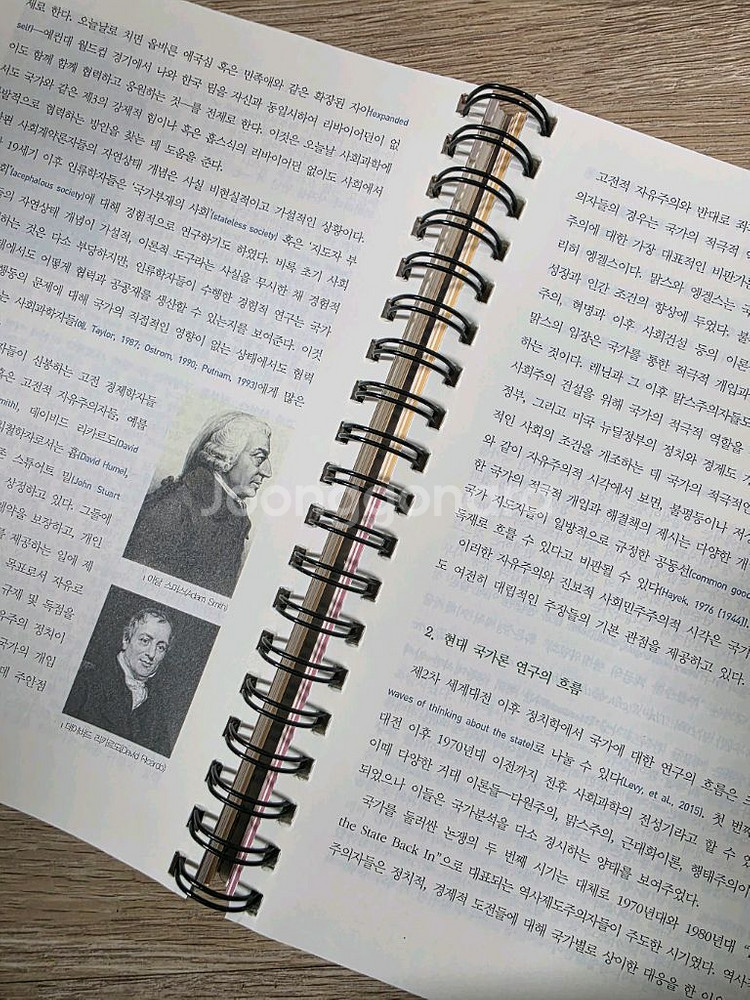 제로 한다. 오늘날로 치면 올바른 애국심 혹은 민족애와 같은 확장된 자아(expanded
self)—예컨대 월드컵 경기에서 나와 한국 팀을 자신과 동일시하여 리바이어던이 없
이도 함께 함께 협력하고 응원하는 것—를 전제로 한다. 이것은 오늘날 사회과학에
서도 국가와 같은 제3의 강제적 힘이나 혹은 홉스식의 리바이어던 없이도 사회에서
발적으로 협력하는 방안을 찾는 데 도움을 준다.
편 사회계약론자들의 자연상태 개념은 사실 비현실적이고 가설적인 상황이다.
19세기 이후 인류학자들은 국가부재의 사회(stateless society) 혹은 '지도자 부
회'(acephalous society)에 대해 경험적으로 연구하기도 하였다. 비록 초기 사회
들의 자연상태 개념이 가설적, 이론적 도구라는 사실을 무시한 채 경험적
하는 것은 다소 부당하지만, 인류학자들이 수행한 경험적 연구는 국가
에서도 어떻게 협력과 공공재를 생산할 수 있는지를 보여준다. 이것
행동의 문제에 대해 국가의 직접적인 영향이 없는 상태에서도 협력
는 사회과학자들(예, Taylor, 1987; Ostrom, 1990; Putnam, 1993)에게 많은
자들이 신봉하는 고전 경제학자들
혹은 고전적 자유주의자들, 예를
Smith), 데이비드 리카르도(David
철학자로서는 흄(David Hume),
존 스튜어트 밀(John Stuart
상정하고 있다. 그들에
계약을 보장하고, 개인
를 제공하는 일에 제
목표로서 자유로
규제 및 독점을
유주의 정치이
국가의 개입
데 주안점
아담 스미스(Adam Smith)
데이비드 리카르도(David Ricardo)
고전적 자유주의와 반대로 좌
의자들의 경우는 국가의 적극적
주의에 대한 가장 대표적인 비판가는
리히 엥겔스이다. 맑스와 엥겔스는
성장과 인간 조건의 향상에 두었다.
주의, 혁명과 이후 사회건설 등의 이론
맑스의 입장은 국가를 통한 적극적 개입과
하는 것이다. 레닌과 그 이후 맑스주의자들도
사회주의 건설을 위해 국가의 적극적 역할을
정부, 그리고 미국 뉴딜정부의 정치와 경제도
적인 사회의 조건을 개조하는 데 국가의 적극적인
와 같이 자유주의적 시각에서 보면, 불평등이나
한 국가의 적극적 개입과 해결책의 제시는 다양한 개
국가 지도자들이 일방적으로 규정한 공동선(common good
독재로 흐를 수 있다고 비판될 수 있다(Hayek, 1976 [1944]).
이러한 자유주의와 진보적 사회민주주의적 시각은 국가
도 여전히 대립적인 주장들의 기본 관점을 제공하고 있다.
2. 현대 국가론 연구의 흐름
제2차 세계대전 이후 정치학에서 국가에 대한 연구의 흐름은
waves of thinking about the state)로 나눌 수 있다(Levy, et al., 2015). 첫 번
대전 이후 1970년대 이전까지 전후 사회과학의 전성기라고 할 수
이때 다양한 거대 이론들—다원주의, 맑스주의, 근대화이론, 행태주의
되었으나 이들은 국가분석을 다소 경시하는 양태를 보여주었다.
국가를 둘러싼 논쟁의 두 번째 시기는 대체로 1970년대와 1980년대
the State Back In"으로 대표되는 역사제도주의자들이 주도한 시기였다. 역사
주의자들은 정치적, 경제적 도전들에 대해 국가별로 상이한 대응을 한
Joonggonara